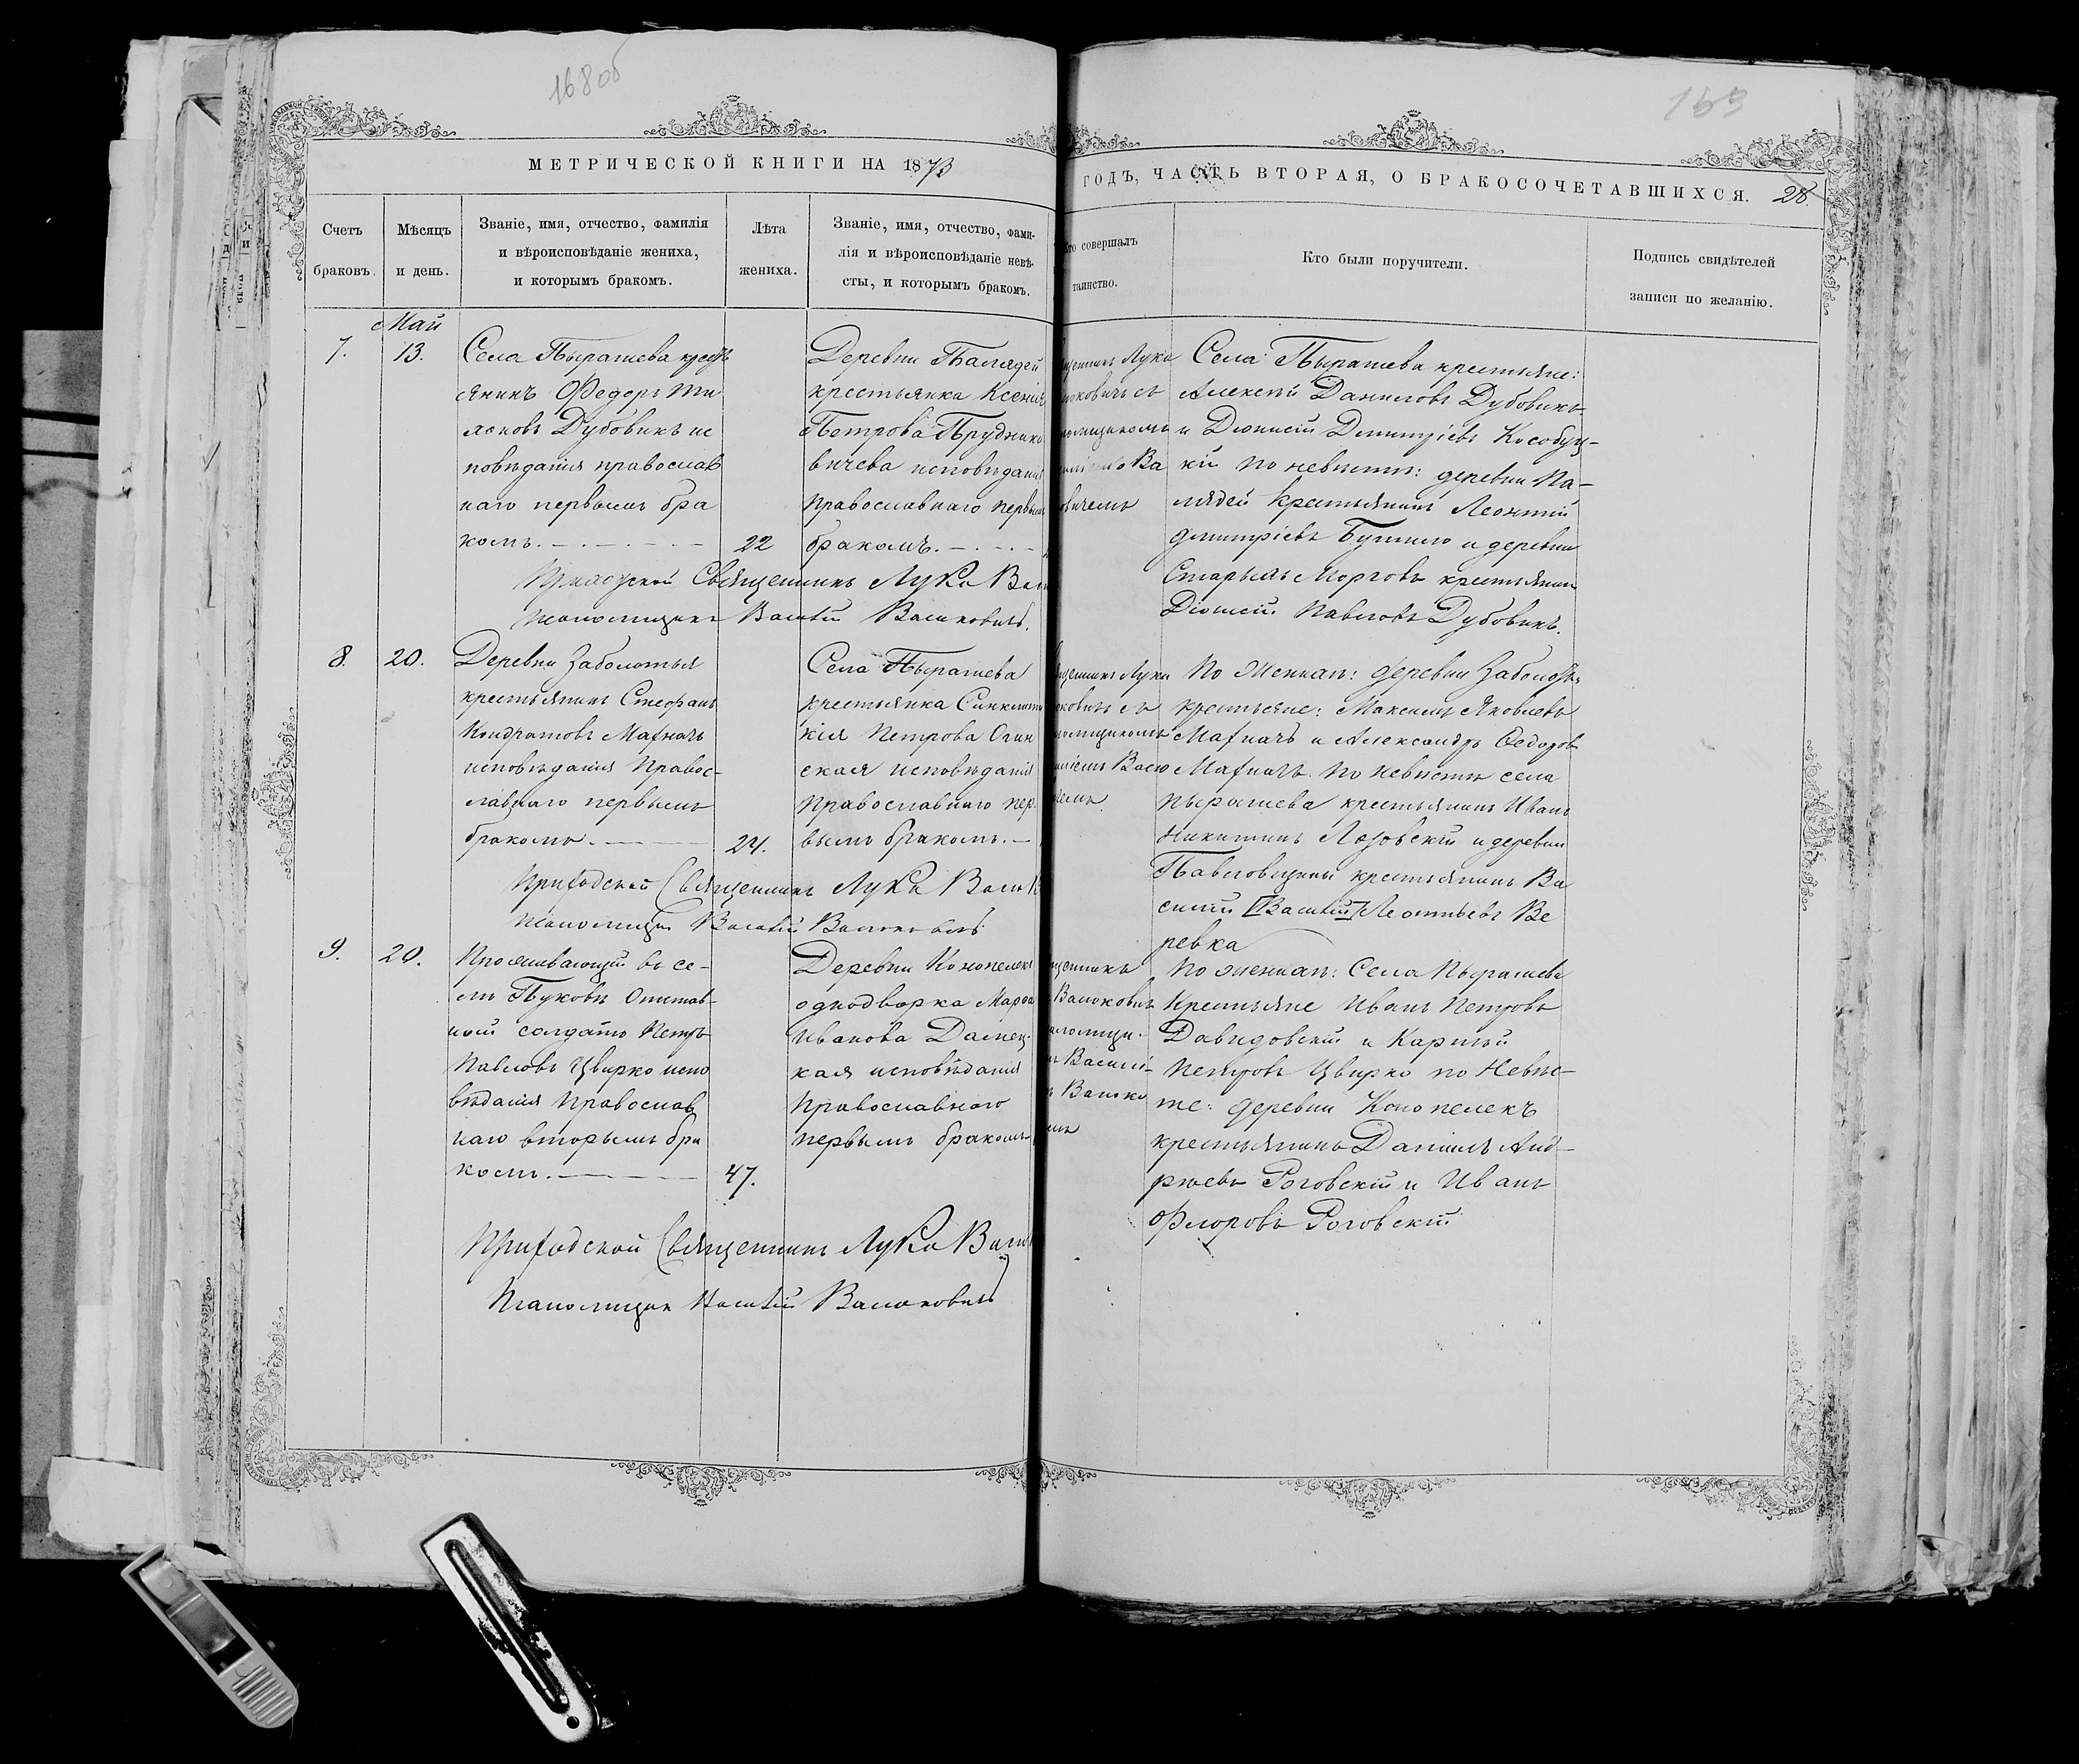 168об
169
МЕТРИЧЕСКОЙ КНИГИ НА 1873
ГОДЪ, ЧАСТЬ ВТОРАЯ, О БРАКОСОЧЕТАВШИХСЯ. 28.
Счетъ
браковъ.
Мѣсяцъ
и день.
Званіе, имя, отчество, фамилія
и вѣроисповѣданіе жениха,
и которымъ бракомъ.
Лѣта
жениха.
Званіе, имя, отчество, фами-
лія и вѣроисповѣданіе невѣ-
сты, и которымъ бракомъ.
Кто совершалъ
таинство.
Кто были поручители.
Подпись свидѣтелей
записи по желанію.
Май
7.
13.
Села Пырашева крестъ
янинъ Ѳедоръ
Дубовикъ ис
повѣданія православ
наго первымъ бра
комъ.
22
Деревни
крестьянка Ксенія
Петрова Прудни
вичева исповѣданія
Православнаго первым
бракомъ.
Лука
съ
Ва
Села Пырашева крестьяне:
Алексѣй Даниловъ Дубовикъ
и Діонисій Димитріевъ Кособуц-
кій по невѣстѣ: деревни Па-
лядей крестьянинъ Леонтій
Димитріевъ и деревни
Старыхъ Морговъ крестьянин
Павловъ Дубовикъ.
Приходской Священникъ Лука Вас
Псаломщикъ Василій
8.
20.
Деревни Заболотья
крестьянинъ Стефанъ
Кондратовъ Махначъ
исповѣданія Правос-
лавнаго первымъ
бракомъ.
24.
Села Пырашева
крестьянка Синклити
кія Петрова Огин
ская исповѣданія
Православнаго пер
вымъ бракомъ.
Луки
съ
По женихѣ: деревни Заболотья
крестьяне: Максимъ Яковлевъ
Махначъ и Александръ Ѳедоров
Махначъ. По невѣстѣ села
Пырашева крестьянинъ Иванъ
Никитинъ Лозовскій и деревни
Павловщины крестьянинъ Ва
силій [Василій] Леонтьевъ Ве
ревка
Приходской Священникъ Лука
Псаломщик Василій
9.
20.
Проживающій въ се-
лѣ Пуковѣ Отстав-
ной солдатъ Петръ
Павловъ Цвирко испо
вѣданія Православ
наго вторымъ бра
комъ.
47.
Деревни Конопелекъ
однодворка Марѳа
Иванова
кая исповѣданія
Православнаго
первымъ бракомъ
По женихѣ: Села Пырашева
Крестьяне Иванъ Петровъ
Давидовскій и Карпъ
Петровъ Цвирко по Невѣс-
тѣ: деревни Конопелекъ
крестьянинъ Даніилъ Анд-
реевъ Роговскій и Иванъ
Флоровъ Роговскій
Приходской Священникъ Лука
Псаломщик Василій